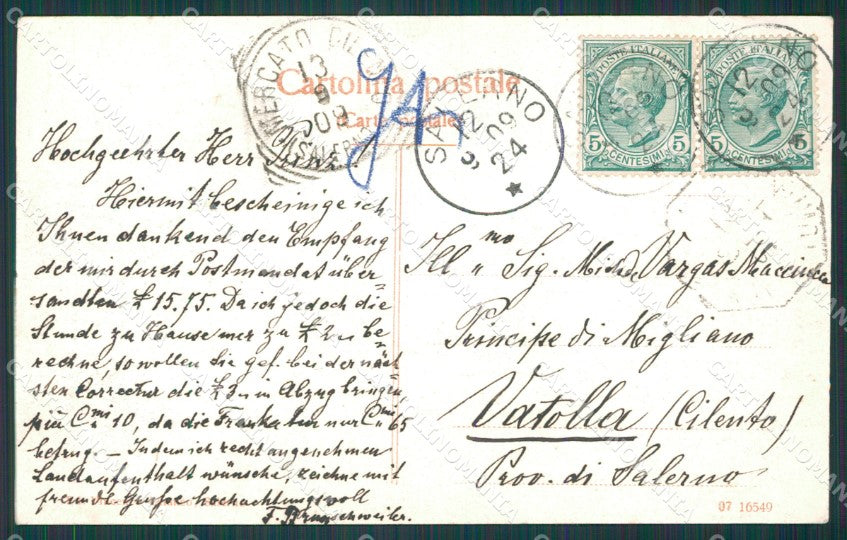 Cartolina postale
(Carta postale)
MERCATO CILENTO
13
9
09
(SALERNO)
SALERNO
12
9 09
24
POSTE ITALIANE
5 CENTESIMI 5
POSTE ITALIANE
5 CENTESIMI 5
SALERNO
12
09
24
Hochgeehrter Herr
Hiermit bescheinige ich
Ihnen dankend den Empfang
der mir durch Postmandat über-
sandten £ 15.75. Da ich jedoch die
Stunde zu Hause nur zu £ 2 be-
rechne, so wollen Sie gef. bei der näch-
sten Correctur die £ 3 in Abzug bringen
più Cmi 10, da die Frankatur nur Cmi 65
betrug. — Indem ich recht angenehmen
Landaufenthalt wünsche, zeichne mit
freundl. Grüße hochachtungsvoll
F. Brunschweiler.
Ill mo Sig. Vargas Macciucca
Principe di Migliano
Vatolla (Cilento)
Prov. di Salerno
07 16549
CARTOLINOMANIA